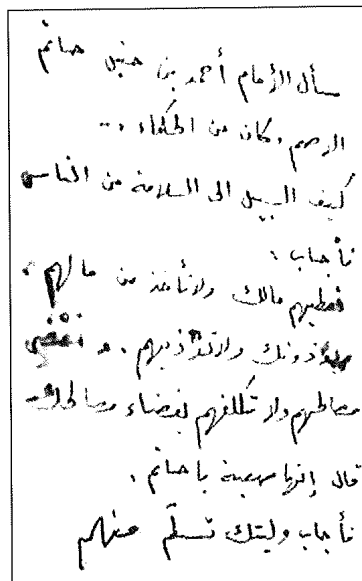 سأل الإمام أحمد بن حنبل حاتم
الاصم وكان من الحكماء ..
كيف السبيل الى السلامة من الناس
فأجاب :
تعطيهم مالك ولا تأخذ من مالهم ،
ويؤذونك ولا تؤذيهم . و تقضي
مصالحهم ولا تكلفهم بقضاء مصالحك .
قال إنها صعبة يا حاتم .
فأجاب وليتك تسلم منهم